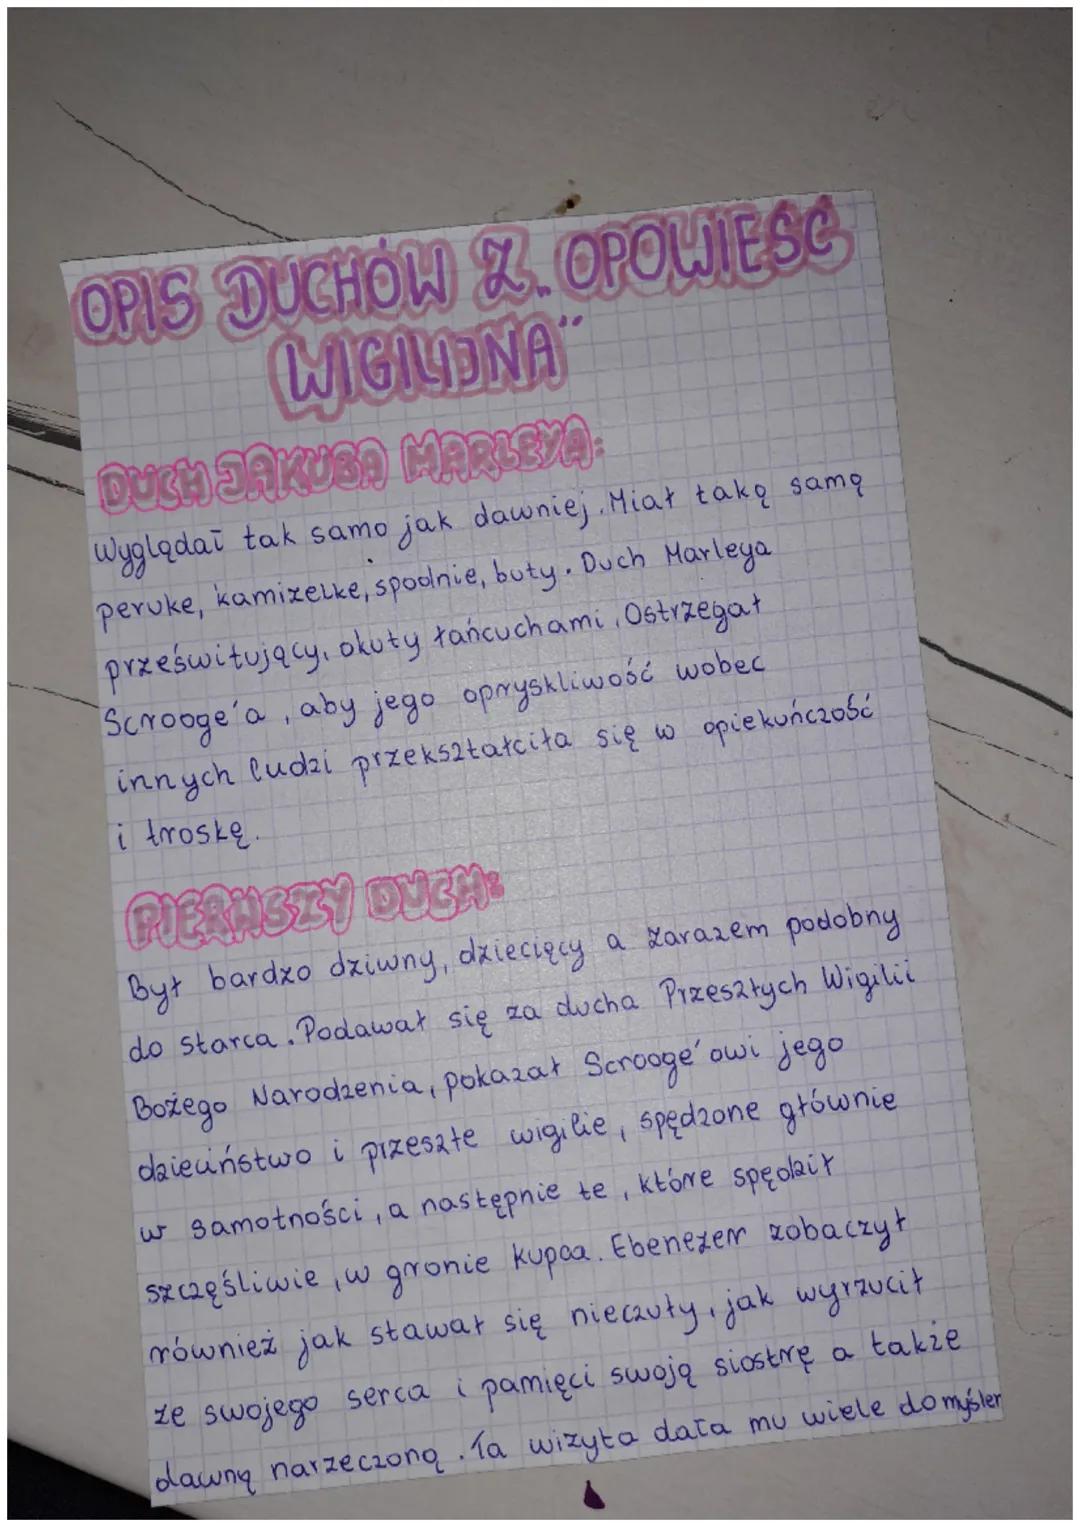 OPIS DUCHÓW Z „OPOWIEŚĆ
WIGILIJNA"
DUCH JAKUBA MARLEYA:
Wyglądał tak samo jak dawniej. Miał taką samą
peruke, kamizelke, spodnie, buty. Duch Marleya
prześwitujący, okuty łańcuchami. Ostrzegał
Scrooge'a, aby jego opryskliwość wobec
innych ludzi przekształciła się w opiekuńczość
i troskę.
PIERWSZY DUCH:
Był bardzo dziwny, dziecięcy a zarazem podobny
do starca. Podawał się za ducha Przeszłych Wigilii
Bożego Narodzenia, pokazał Scrooge'owi jego
dzieciństwo i przeszłe wigilie, spędzone głównie
w samotności, a następnie te, które spędził
szczęśliwie, w gronie kupca. Ebenezer zobaczył
również jak stawał się nieczuły, jak wyrzucił
ze swojego serca i pamięci swoją siostrę a także
dawną narzeczoną. Ta wizyta dała mu wiele do myśler